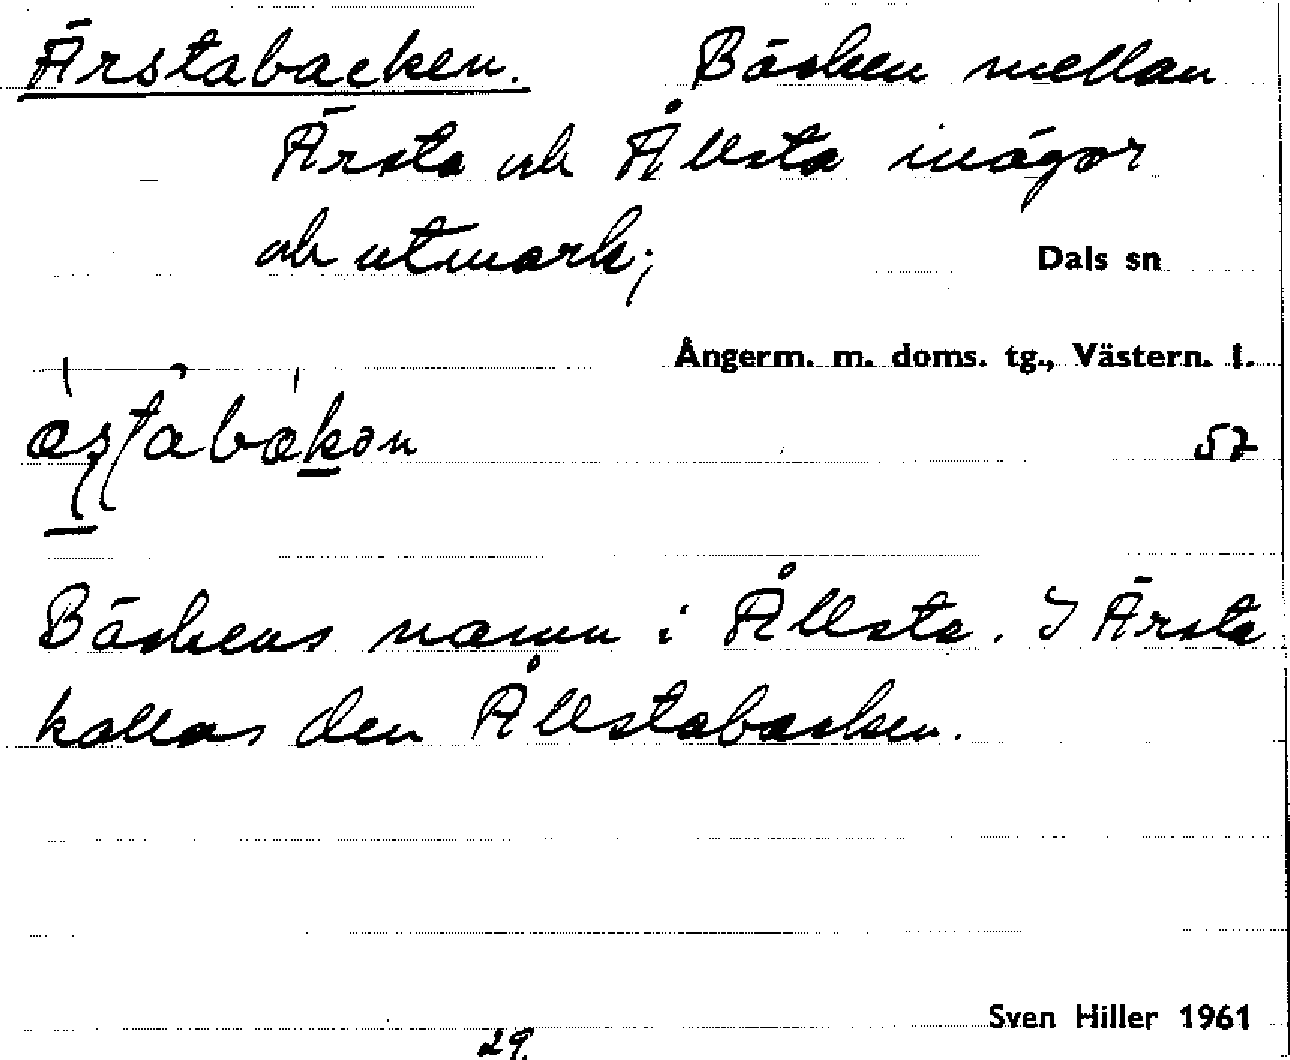 Ärstabacken. Bäcken mellan
Ärsta och Ållsta inägor
och utmark;
Dals sn
Ångerm. m. doms. tg., Västern. l.
57
Bäckens namn i Ållsta. I Ärsta
kallas den Ållstabacken.
Sven Hiller 1961
29.